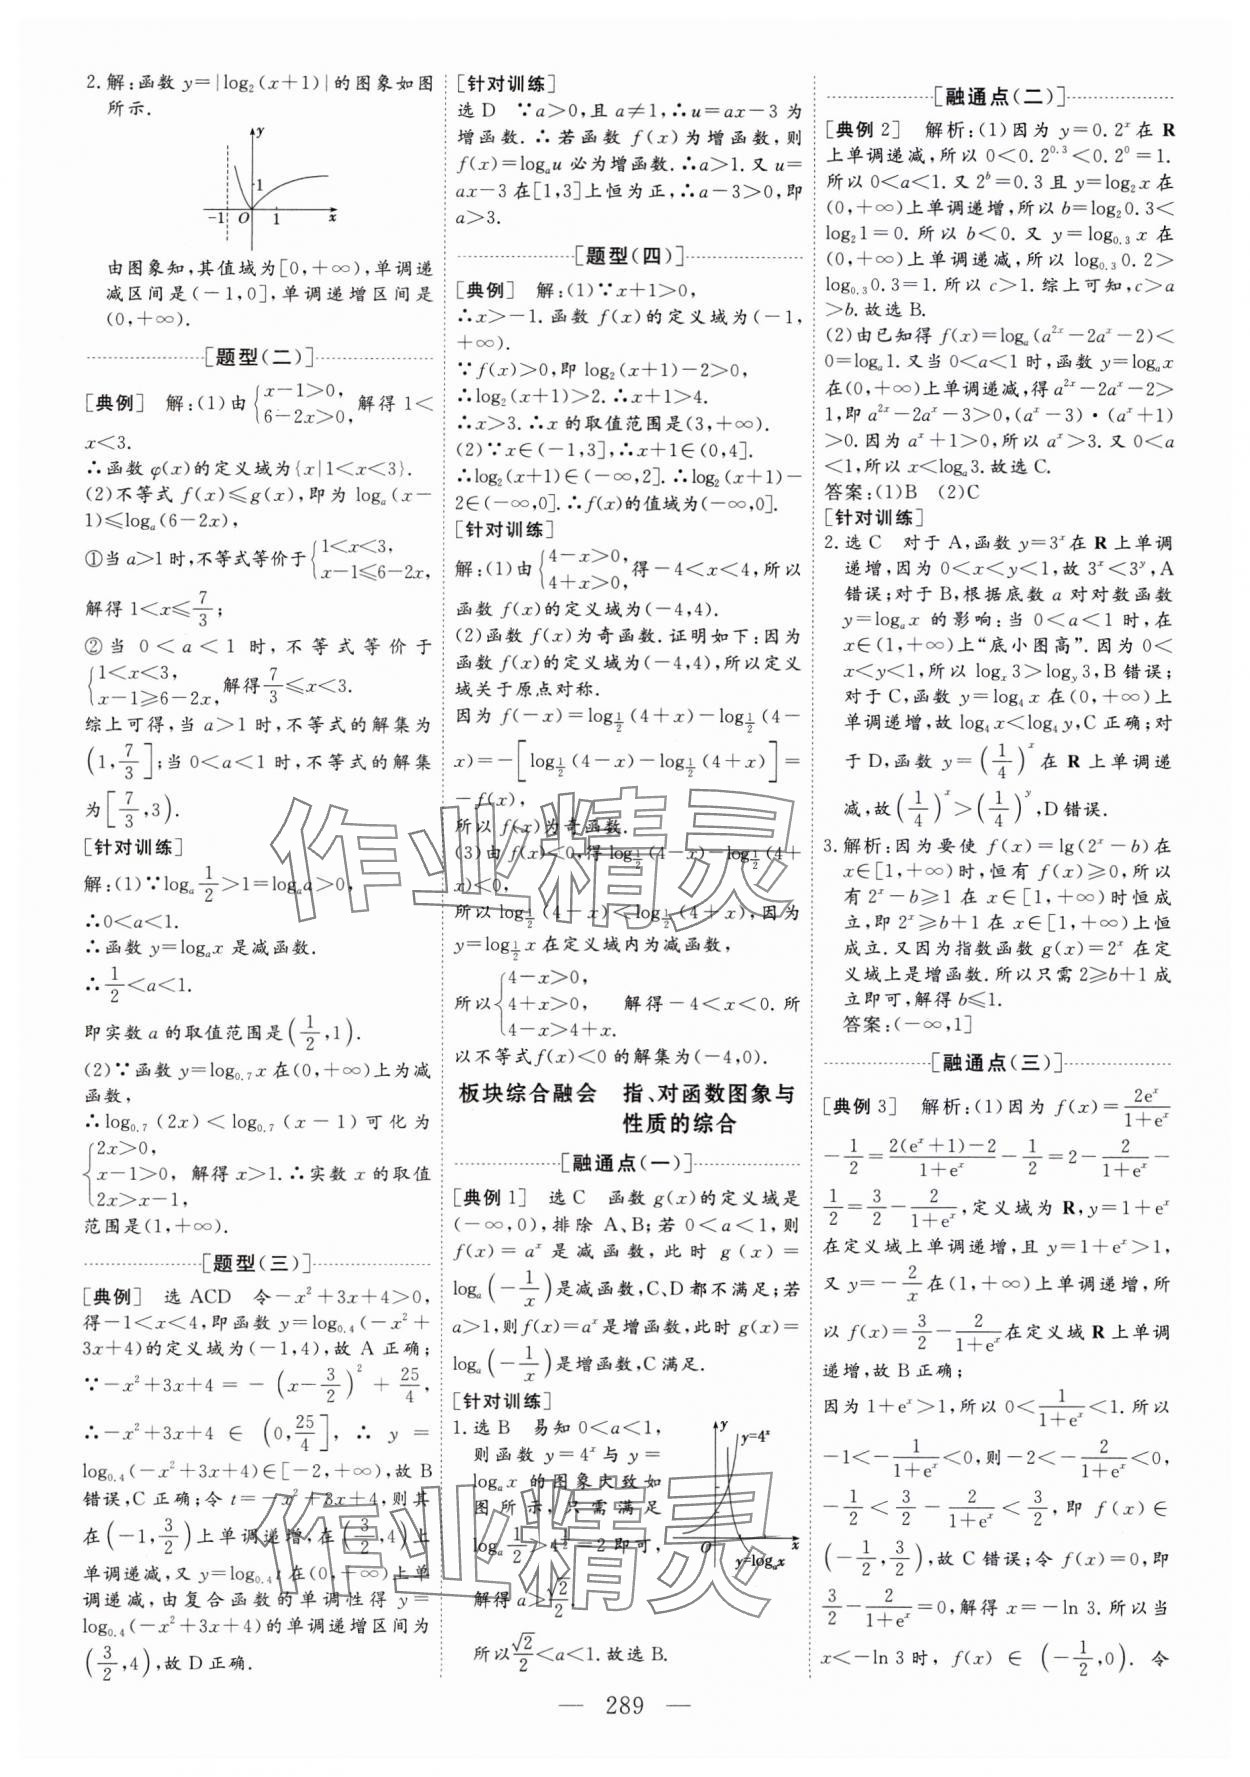 2. 解:函数 y=|log₂(x+1)|的图象如图
所示.
y
1
-1 O 1 x
由图象知,其值域为[0,+∞),单调递
减区间是(-1,0],单调递增区间是
(0,+∞).
[题型(二)]
[典例] 解:(1)由{x-1>0, 6-2x>0, 解得 1<
x<3.
∴函数 φ(x)的定义域为{x|1<x<3}.
(2)不等式 f(x)≤g(x),即为 logₐ(x-
1)≤logₐ(6-2x),
①当 a>1 时,不等式等价于{1<x<3, x-1≤6-2x,
解得 1<x≤7/3;
②当 0<a<1 时,不等式等价于
{1<x<3, x-1≥6-2x, 解得7/3≤x<3.
综上可得,当 a>1 时,不等式的解集为
(1,7/3];当 0<a<1 时,不等式的解集
为[7/3,3).
[针对训练]
解:(1)∵logₐ1/2>1=logₐa>0,
∴0<a<1.
∴函数 y=logₐx 是减函数.
∴1/2<a<1.
即实数 a 的取值范围是(1/2,1).
(2)∵函数 y=log₀.₇x 在(0,+∞)上为减
函数,
∴log₀.₇(2x)<log₀.₇(x-1)可化为
{2x>0, x-1>0, 2x>x-1, 解得 x>1.∴实数 x 的取值
范围是(1,+∞).
[题型(三)]
[典例] 选 ACD 令-x²+3x+4>0,
得-1<x<4,即函数 y=log₀.₄(-x²+
3x+4)的定义域为(-1,4),故 A 正确;
∵-x²+3x+4=-(x-3/2)²+25/4,
∴-x²+3x+4∈(0,25/4],∴y=
log₀.₄(-x²+3x+4)∈[-2,+∞),故 B
错误,C 正确;令 t=-x²+3x+4,则其
在(-1,3/2)上单调递增,在(3/2,4)上
单调递减,又 y=log₀.₄t 在(0,+∞)上单
调递减,由复合函数的单调性得 y=
log₀.₄(-x²+3x+4)的单调递增区间为
(3/2,4),故 D 正确.
[针对训练]
选 D ∵a>0,且 a≠1,∴u=ax-3 为
增函数.∴若函数 f(x)为增函数,则
f(x)=logₐu 必为增函数.∴a>1.又 u=
ax-3 在[1,3]上恒为正,∴a-3>0,即
a>3.
[题型(四)]
[典例] 解:(1)∵x+1>0,
∴x>-1.函数 f(x)的定义域为(-1,
+∞).
∵f(x)>0,即 log₂(x+1)-2>0,
∴log₂(x+1)>2.∴x+1>4.
∴x>3.∴x 的取值范围是(3,+∞).
(2)∵x∈(-1,3],∴x+1∈(0,4].
∴log₂(x+1)∈(-∞,2].∴log₂(x+1)-
2∈(-∞,0].∴f(x)的值域为(-∞,0].
[针对训练]
解:(1)由{4-x>0, 4+x>0, 得-4<x<4,所以
函数 f(x)的定义域为(-4,4).
(2)函数 f(x)为奇函数.证明如下:因为
函数 f(x)的定义域为(-4,4),所以定义
域关于原点对称.
因为 f(-x)=log_{1/2}(4+x)-log_{1/2}(4-
x)=-[log_{1/2}(4-x)-log_{1/2}(4+x)]=
-f(x),
所以 f(x)为奇函数.
(3)由 f(x)<0,得log_{1/2}(4-x)-log_{1/2}(4+
x)<0,
所以 log_{1/2}(4-x)<log_{1/2}(4+x),因为
y=log_{1/2}x 在定义域内为减函数,
所以{4-x>0, 4+x>0, 4-x>4+x. 解得-4<x<0.所
以不等式f(x)<0 的解集为(-4,0).
板块综合融会 指、对函数图象与
性质的综合
[融通点(一)]
[典例 1] 选 C 函数 g(x)的定义域是
(-∞,0),排除 A、B;若 0<a<1,则
f(x)=aˣ 是减函数,此时 g(x)=
logₐ(-1/x)是减函数,C、D都不满足;若
a>1,则f(x)=aˣ是增函数,此时g(x)=
logₐ(-1/x)是增函数,C满足.
[针对训练]
1. 选 B 易知 0<a<1,
则函数 y=4ˣ 与 y=
logₐx 的图象大致如
图所示,只需满足
logₐ1/2>4^{1/2}=2 即可,
解得 a>√2/2,
所以√2/2<a<1.故选 B.
y
y=4ˣ
O x
y=logₐx
[融通点(二)]
[典例 2] 解析:(1)因为 y=0.2ˣ 在 R
上单调递减,所以 0<0.2^{0.3}<0.2⁰=1.
所以 0<a<1.又 2ᵇ=0.3 且 y=log₂x 在
(0,+∞)上单调递增,所以 b=log₂0.3<
log₂1=0.所以 b<0.又 y=log₀.₃x 在
(0,+∞)上单调递减,所以 log₀.₃0.2>
log₀.₃0.3=1.所以 c>1.综上可知,c>a
>b.故选 B.
(2)由已知得 f(x)=logₐ(a²ˣ-2aˣ-2)<
0=logₐ1.又当 0<a<1 时,函数 y=logₐx
在(0,+∞)上单调递减,得 a²ˣ-2aˣ-2>
1,即 a²ˣ-2aˣ-3>0,(aˣ-3)·(aˣ+1)
>0.因为 aˣ+1>0,所以 aˣ>3.又 0<a
<1,所以 x<logₐ3.故选 C.
答案:(1)B (2)C
[针对训练]
2. 选 C 对于 A,函数 y=3ˣ 在 R 上单调
递增,因为 0<x<y<1,故 3ˣ<3ʸ,A
错误;对于 B,根据底数 a 对对数函数
y=logₐx 的影响:当 0<a<1 时,在
x∈(1,+∞)上“底小图高”.因为 0<
x<y<1,所以 logₓ3>log_y3,B 错误;
对于 C,函数 y=log₄x 在(0,+∞)上
单调递增,故 log₄x<log₄y,C 正确;对
于 D,函数 y=(1/4)ˣ 在 R 上单调递
减,故(1/4)ˣ>(1/4)ʸ,D 错误.
3. 解析:因为要使 f(x)=lg(2ˣ-b)在
x∈[1,+∞)时,恒有 f(x)≥0,所以
有 2ˣ-b≥1 在 x∈[1,+∞)时恒成
立,即 2ˣ≥b+1 在 x∈[1,+∞)上恒
成立.又因为指数函数 g(x)=2ˣ 在定
义域上是增函数.所以只需 2≥b+1 成
立即可,解得 b≤1.
答案:(-∞,1]
[融通点(三)]
[典例 3] 解析:(1)因为 f(x)=2eˣ/(1+eˣ)
-1/2=(2(eˣ+1)-2)/(1+eˣ)-1/2=2-2/(1+eˣ)-
1/2=3/2-2/(1+eˣ),定义域为 R,y=1+eˣ
在定义域上单调递增,且 y=1+eˣ>1,
又 y=-2/x在(1,+∞)上单调递增,所
以 f(x)=3/2-2/(1+eˣ)在定义域 R 上单调
递增,故 B 正确;
因为 1+eˣ>1,所以 0<1/(1+eˣ)<1.所以
-1<-1/(1+eˣ)<0,则-2<-2/(1+eˣ)<0,
-1/2<3/2-2/(1+eˣ)<3/2,即 f(x)∈
(-1/2,3/2),故 C 错误;令 f(x)=0,即
3/2-2/(1+eˣ)=0,解得 x=-ln 3.所以当
x<-ln 3 时,f(x)∈(-1/2,0).令
— 289 —
作业精灵
作业精灵